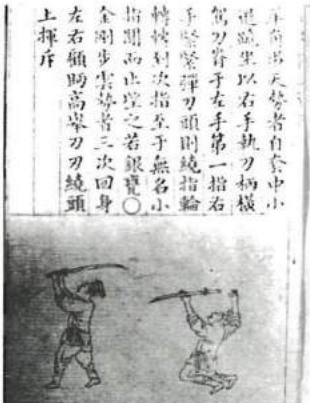 羊角出天勢者自套中小
退跪坐以右手執刀柄橫
駕刀脊于左手第一指右
手緊緊彈刀頭則繞指輪
轉轉到次指至于無名小
指間而止望之若銀甕○
金剛步雲勢者三次回身
左右顧眄高舉刀刃繞頭
上揮斥